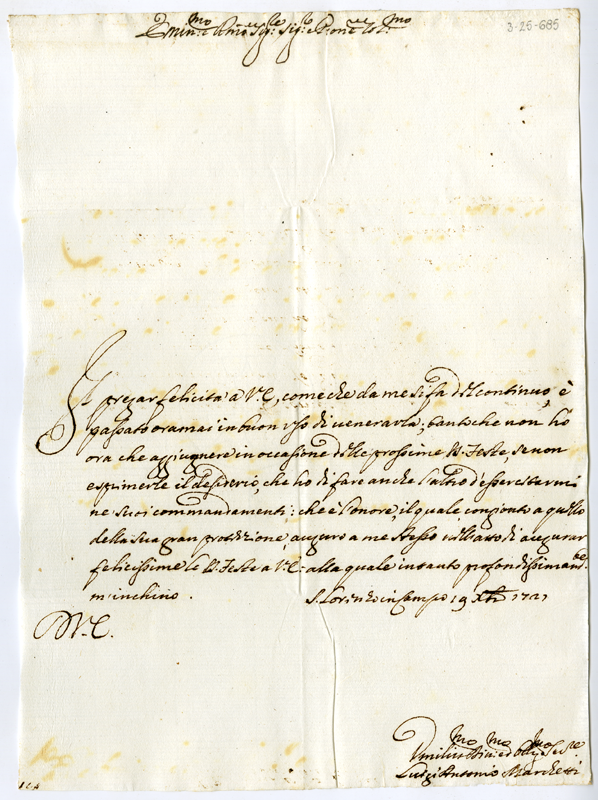 Emin.mo e R.mo Sig.re Sig.re e P.rone Col.mo
3-25-685
Il pregar felicita a V. E., come che da me si fa del continuo, è
passato oramai in buon uso di venerarla; tanto che non ho
ora che aggiugnere in occasione delle prossime SS. Feste se non
esprimerle il desiderio, che ho di fare anche l'altro d'essercitarmi
ne suoi commandamenti: che è l'onore, il quale congionto a quello
della sua gran protezione, auguro a me stesso nell'atto di augurar
felicissime le SS. Feste a V. E. alla quale intanto profondissimam.te
m'inchino. S. Lorenzo in Campo 19 Xbre 1721
D. V. E.
Umilis.mo Div.mo ed Obl.mo Ser.re
Luigi Antonio Marchetti